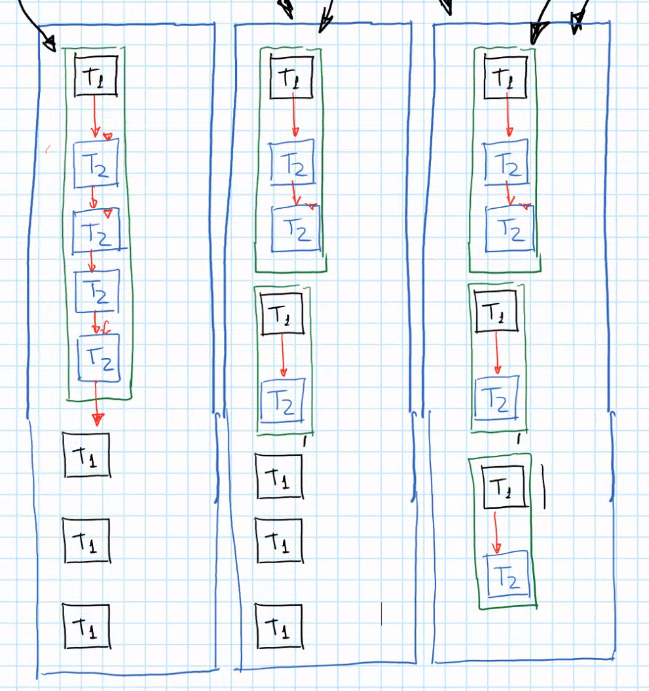 T1
T2
T2
T2
T2
T1
T1
T1
T1
T2
T2
T1
T2
T1
T1
T1
T1
T2
T2
T1
T2
T1
T2